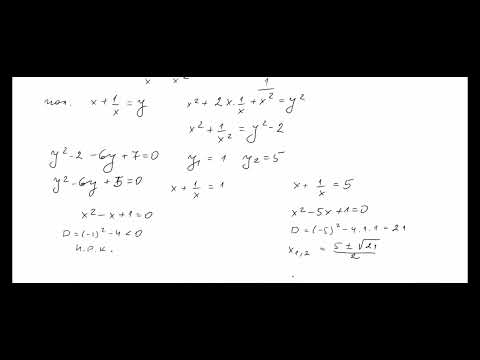 x x²
пол. x + 1/x = y x² + 2x·1/x + 1/x² = y²
x² + 1/x² = y² - 2
y² - 2 - 6y + 7 = 0 y₁ = 1 y₂ = 5
y² - 6y + 5 = 0 x + 1/x = 1 x + 1/x = 5
x² - x + 1 = 0 x² - 5x + 1 = 0
D = (-1)² - 4 < 0 D = (-5)² - 4.1.1 = 21
Н.Р.К. x₁,₂ = (5 ± √21)/2